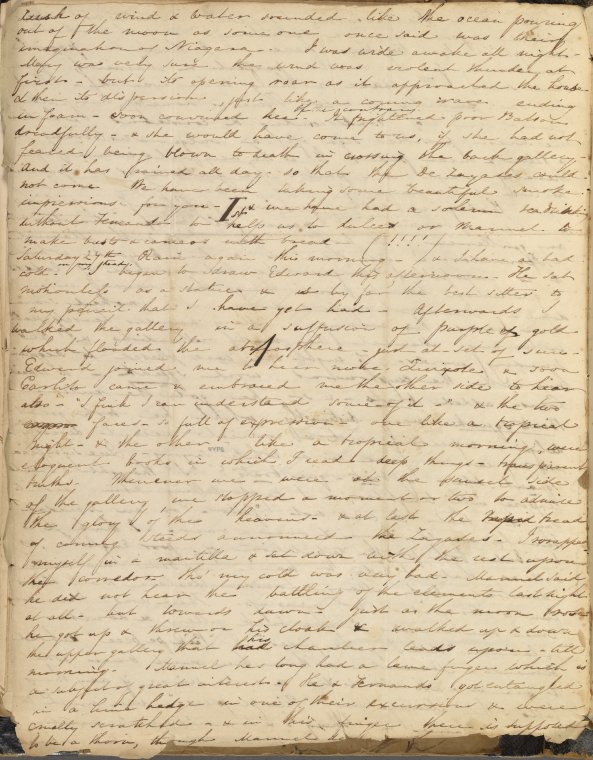 rush of wind & water sounded like the ocean pouring
out of the moon as some one once said was their
imagination of Niagara. I was wide awake all night -
Mary was very sure the wind was violent thunder at
first - but its opening roar as it approached the house
& then its dispersion just like a coming wave ending
in foam - soon convinced her. It frightened poor
dreadfully - & she would have come to us, if she had not
feared being blown to death in crossing the back gallery -
And it has rained all day - so that the De Zayases could
not come. We have been taking some beautiful smoke
impressions for you - & we have had a solemn
without Fernando to help us to dulces or Manuel to
make busts & cameos with bread - (!!!!)
Saturday 24th. Rain again this morning - & I have a bad
cold. I began to draw Edward this afternoon - He sat
in my study
motionless as a statue & is by far the best sitter to
my pencil that I have yet had - Afterwards I
walked the gallery in a suffusion of purple & gold
which flooded the atmosphere just at set of sun -
Edward joined me to hear more & soon
Carlito came & embraced me the other side to hear
also - "I think I can understand some of it" & the two
faces - so full of expression - one like a tropical
night - & the other like a tropical morning, were
eloquent books in which I read deep things - transparent
truths. Whenever we were at the sunset side
of the gallery we stopped a moment or two to admire
the glory of the heavens - & at last the tread
of coming steeds announced the Zayases. I wrapped
myself in a mantilla & sat down with the rest upon
the corredor tho' my cold was very bad. Manuel said
he did not hear the battling of the elements last night
at all - but towards dawn - just as the moon rose
he got up & threw on his cloak & walked up & down
the upper gallery that his chamber leads upon - till
morning. Manuel has long had a lame finger which is
a subject of great interest. He & Fernando got entangled
in a lime hedge in one of their excursions & were
cruelly scratched - & in this finger there is supposed
to be a thorn, though Manuel